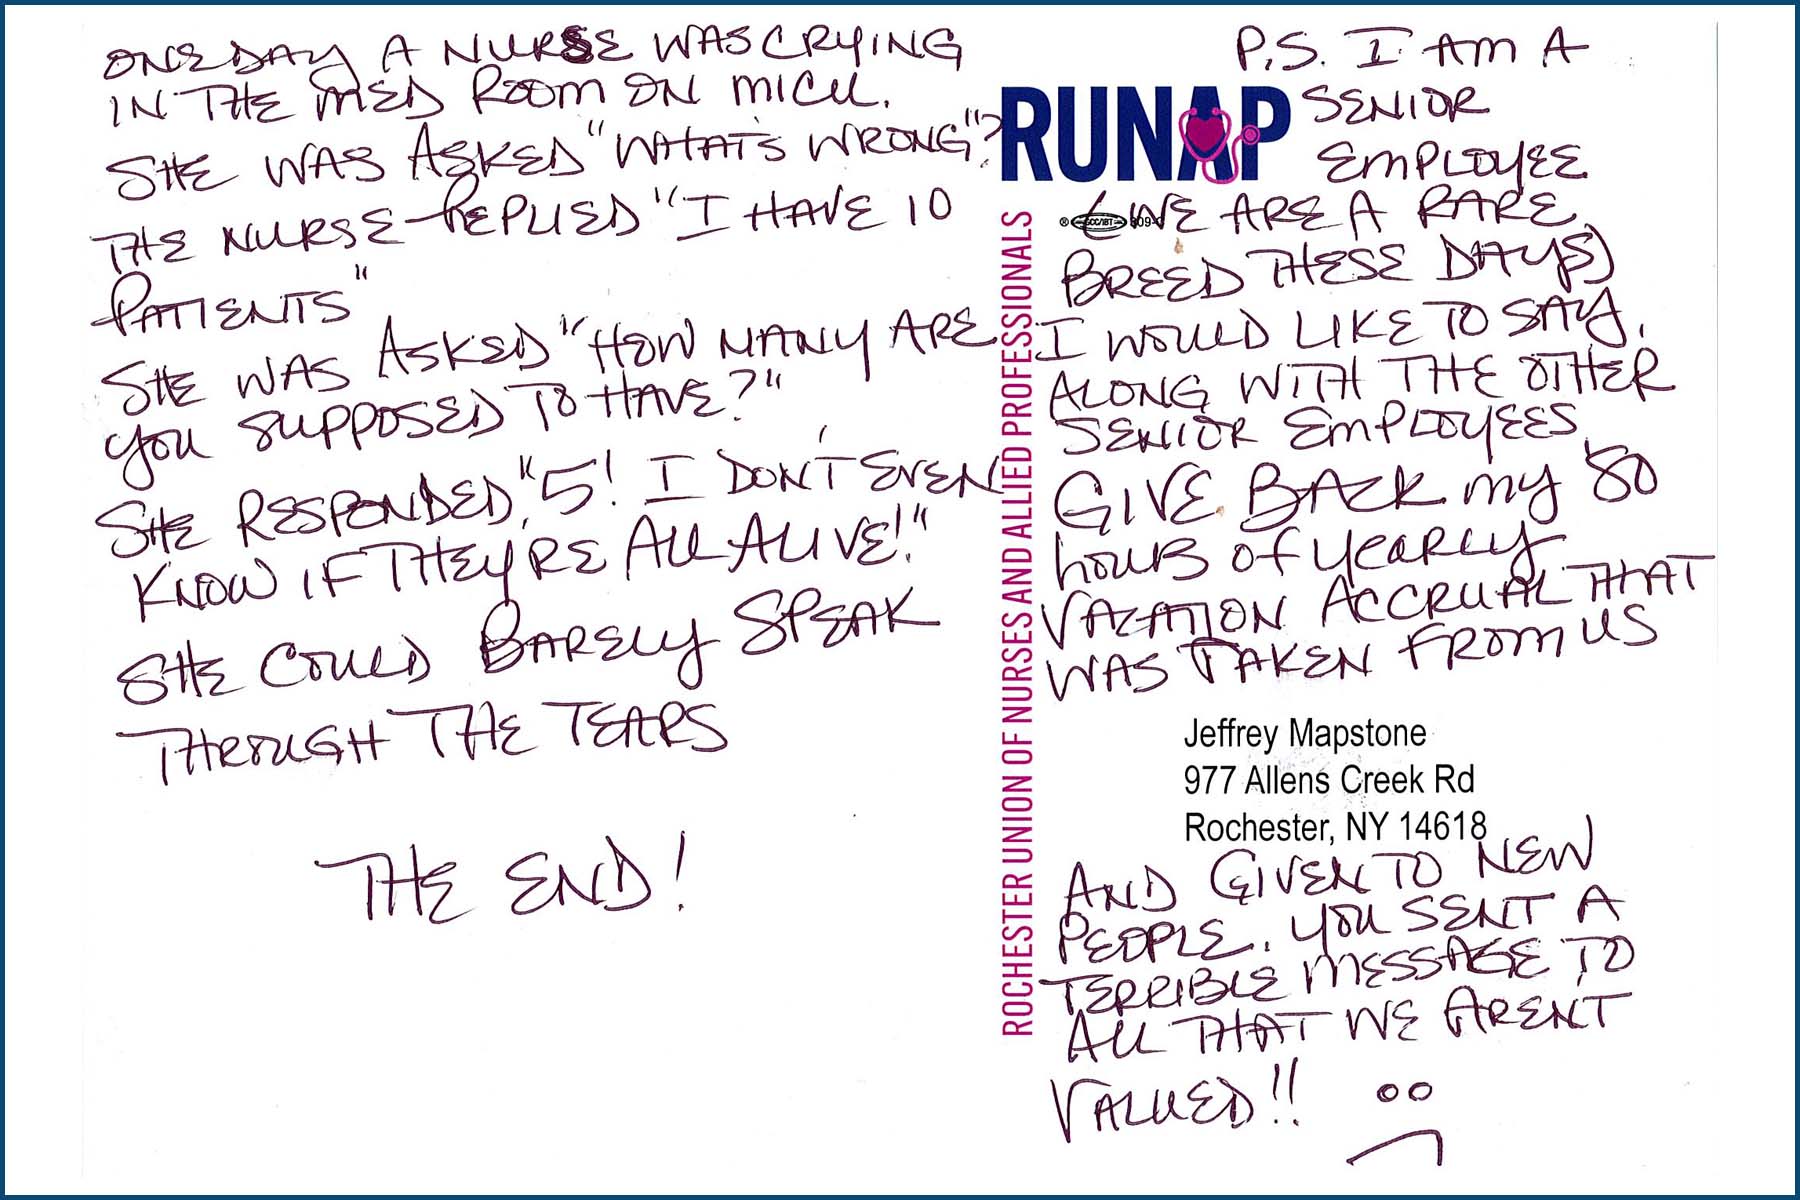 ONE DAY A NURSE WAS CRYING
IN THE MED ROOM ON MICU.
SHE WAS ASKED "WHAT'S WRONG"?
THE NURSE REPLIED "I HAVE 10
PATIENTS"
SHE WAS ASKED "HOW MANY ARE
YOU SUPPOSED TO HAVE?"
SHE RESPONDED, "5! I DON'T EVEN
KNOW IF THEY'RE ALL ALIVE!"
SHE COULD BARELY SPEAK
THROUGH THE TEARS
THE END!
RUNAP
ROCHESTER UNION OF NURSES AND ALLIED PROFESSIONALS
P.S. I AM A
SENIOR
EMPLOYEE
(WE ARE A RARE
BREED THESE DAYS)
I WOULD LIKE TO SAY,
ALONG WITH THE OTHER
SENIOR EMPLOYEES
GIVE BACK MY 80
HOURS OF YEARLY
VACATION ACCRUAL THAT
WAS TAKEN FROM US
Jeffrey Mapstone
977 Allens Creek Rd
Rochester, NY 14618
AND GIVEN TO NEW
PEOPLE. YOU SENT A
TERRIBLE MESSAGE TO
ALL THAT WE ARENT
VALUED!!